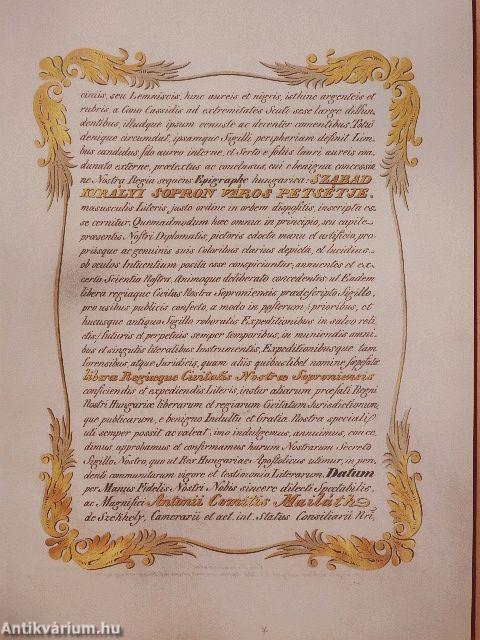 ciniis, seu Lemniscis, hinc aureis et nigris, isthinc argenteis et
rubris, a Cono Cassidis ad extremitates Scuti sese large diffun„
dentibus, illudque ipsum venuste ac decenter convenientibus. Totū
denique circumdat, ipsamque Sigilli peripheriam definit Lim„
bus candidus, filo aureo interne, et Serto e foliis lauri aureis ma„
dunato externe, praetextus ac conclusus, cui e benigna concessio„
ne Nostra Regia sequens Epigraphe hungarica: SZABAD
KIRÁLYI SOPRON VÁROS PETSÉTJE,
maiusculis Literis, justo ordine in ordem dispositis, inscripta es„
se cernitur. Quemadmodum haec omnia in principio, seu capite
praesentis Nostri Diplomatis, pictoris edocta manu et artificio, pro„
priisque ac genuinis suis Coloribus clarius depicta, et lucidius
ob oculos Intuentium posita esse conspiciuntur, annuentes et ex„
certa Scientia Nostra, Animoque deliberato concedentes: ut Eadem
libera regiaque Civitas Nostra Soproniensis praedescripto Sigillo,
pro usibus publicis confecto, a modo in posterum /:prioribus, et
hucusque antiquo Sigillo roboratis Expeditionibus in salvo reli„
ctis:/ futuris et perpetuis semper temporibus, in muniendis omni„
bus et singulis literalibus Instrumentis, Expeditionibusque tam
forensibus, atque Juridicis, quam aliis quibuslibet nomine saepefatae
liberae Regiaeque Civitatis Nostrae Soproniensis
conficiendis et expediendis Literis, instar aliarum praefati Regni
Nostri Hungariae liberarum et regiarum Civitatum Jurisdictionum,
que publicarum, e benigno Indultu et Gratia Nostra speciali
uti semper possit ac valeat; imo indulgemus, annuimus, con ce„
dimus, approbamus et confirmamus harum Nostrarum Secreto
Sigillo Nostro, quo ut Rex Hungariae Apostolicus utimur, in pen„
denti communitarum vigore et testimonio Literarum. Datum
per Manus Fidelis Nostri Nobis sincere dilecti Spectabilis,
ac Magnifici Antonii Comitis Mailáth
de Székhely, Camerarii et act. int. Status Consiliarii Nrī,
Antikvárium.hu